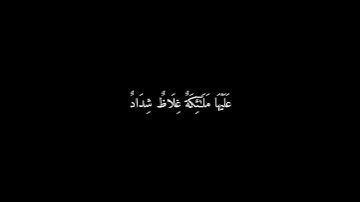 عَلَيْهَا مَلَـٰٓئِكَةٌ غِلَاظٌ شِدَادٌ